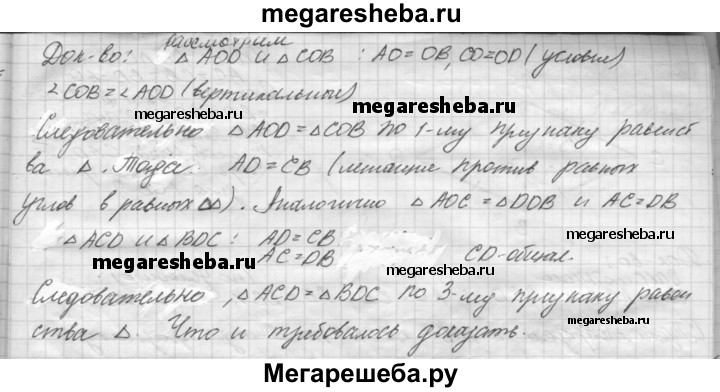 megaresheba.ru
рассмотрим
Док-во: △ AOD и △COB : AO=OB, CO=OD (условия)
∠COB=∠AOD (вертикальные)
megaresheba.ru megaresheba.ru
Следовательно △AOD=△COB по 1-му признаку равенст
ва △. Тогда AD=CB (лежащие против равных
углов в равных △△). Аналогично △ AOC =△DOB и AC=DB
△ ACD и △ BDC : AD=CB
AC=DB CD-общая.
megaresheba.ru megaresheba.ru
Следовательно, △ACD=△BDC по 3-му признаку равен
megaresheba.ru
ства △. Что и требовалось доказать.
megaresheba.ru
Мегарешеба.ру